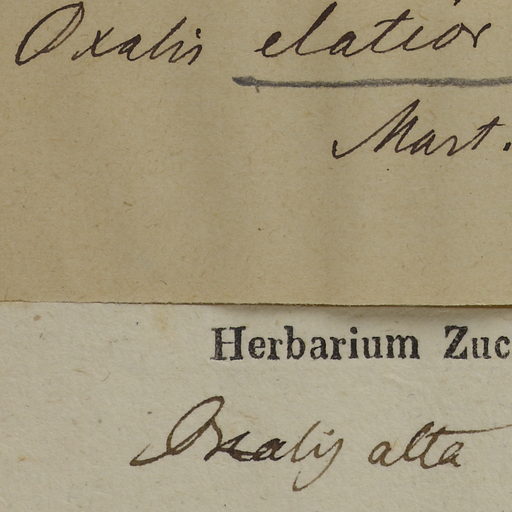 Oxalis elatior
Mart.
Herbarium Zuc
Oxalis alta